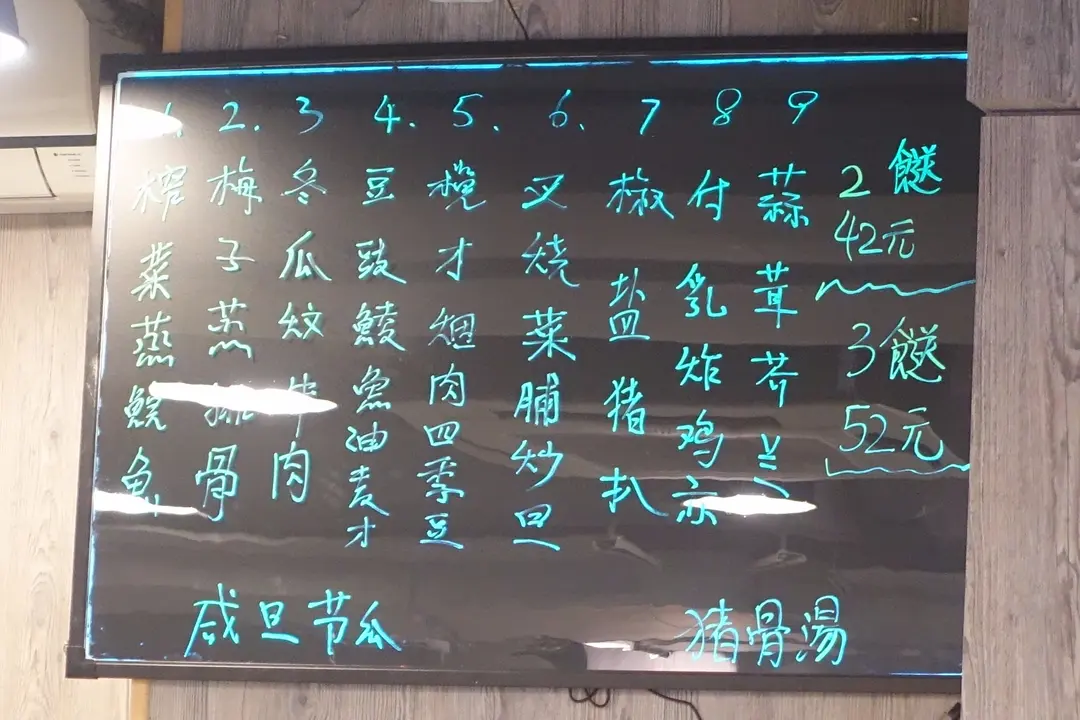 1. 榨菜蒸鯇魚
2. 梅子蒸排骨
3 冬瓜炆牛肉
4. 豆豉鯪魚油麦才
5. 榄才烟肉四季豆
6. 叉烧菜脯炒旦
7 椒盐猪扒
8 付乳炸鸡亦
9 蒜茸芥兰
2餸
42元
3餸
52元
咸旦节瓜
猪骨湯